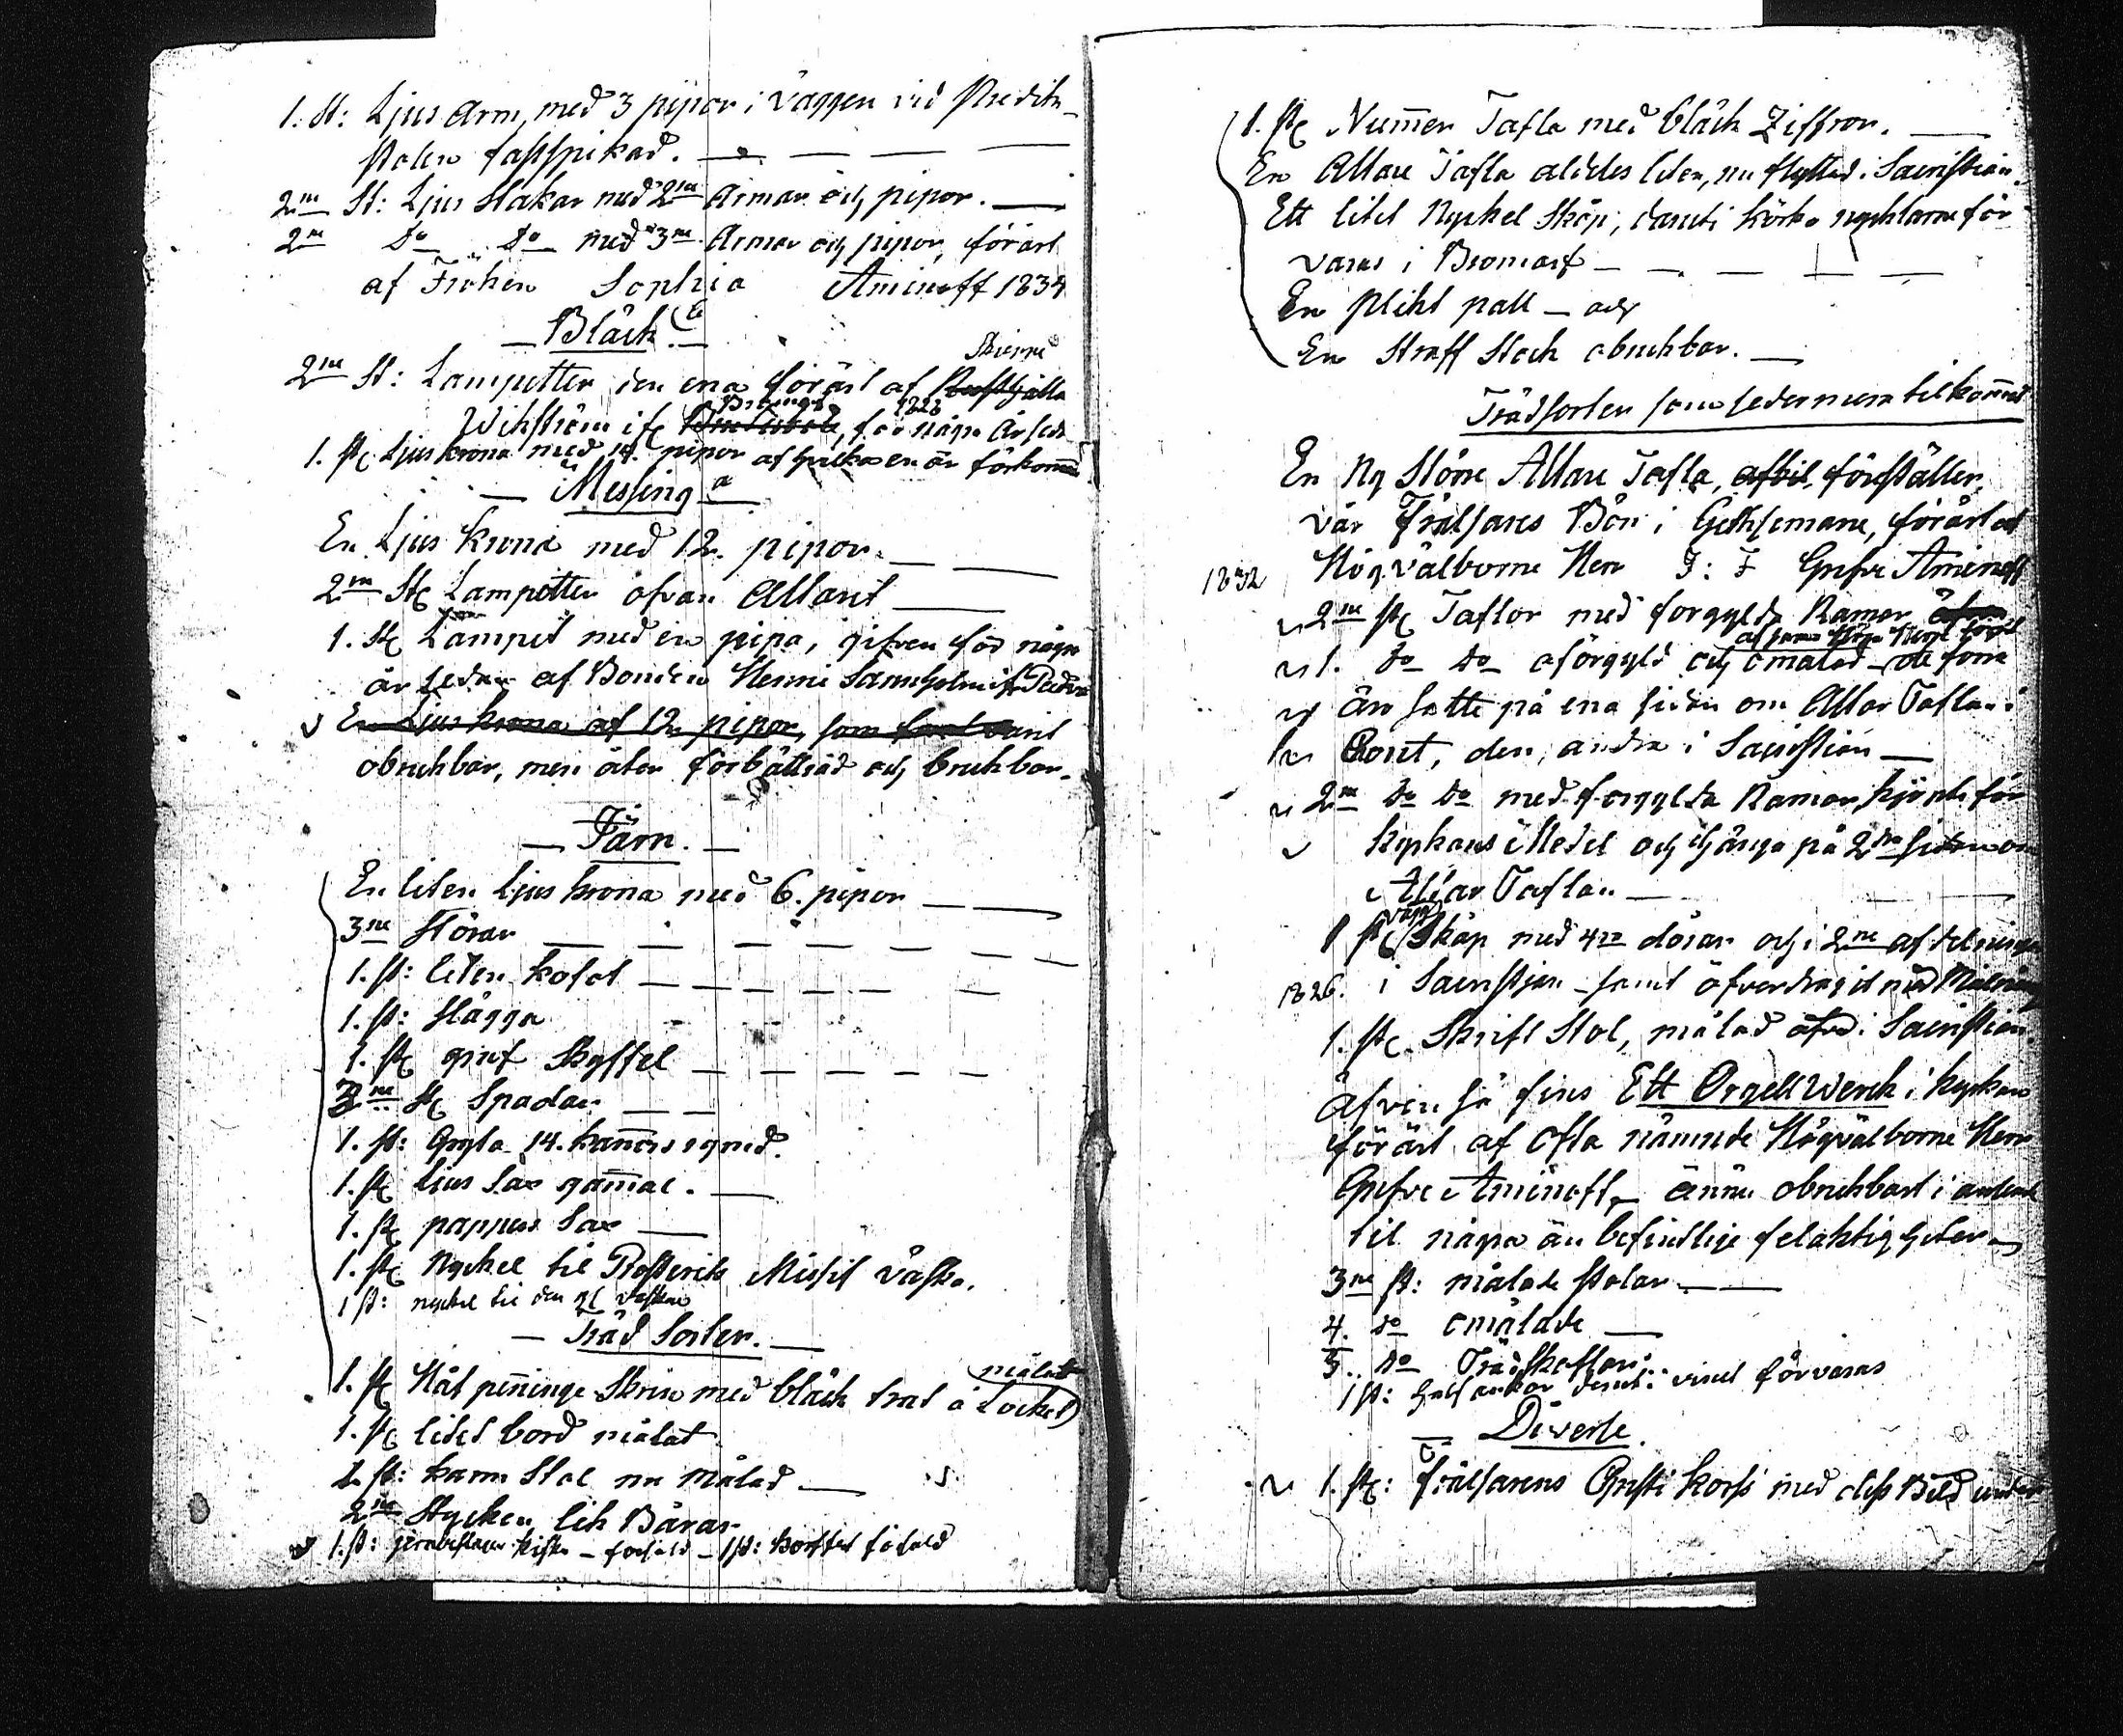 1. St: Ljus Arm, med 3 pipor i Väggen vid Predik-
stolen fastspikad. — — — —
2ne St: Ljus Stakar med 2ne Armar och pipor. —
2ne Do Do med 3ne Armar och pipor, förärt
af Fröken Sophia Aminoff 1834
— Bläck. —
2ne St: Lampetter den ena förärt af
Wikström 1828 för några År sedan
1. st Ljus krona med 14. pipor af hvilka en är förkommen
— Messing —
En Ljus Krona med 12. pipor. — —
2ne St Lampetter ofvan Altaret —
1. St Lampet med en pipa, gifven för några
år sedan af Bonden Henric
En Ljus krona af 12 pipor, som varit
obrukbar, men åter förbättrad och brukbar.
— Järn. —
En liten Ljus krona med 6. pipor — —
3ne Störar — — — — — — —
1. st: liten kofot — — — — — —
1. st: Slägga - - -
1. st graf Skyffel — — — — —
3ne St Spadar — —
1. st: Gryta 14. kannors rymd.
1. st Ljus Sax gammal. —
1. st pappers Sax —
1. st Nyckel til Prosteriets Missiv Väska.
1 st: nyckel til den Väskan
— Träd Sorter. —
målat
1. st Håf penninge Skrin med bläck trat å Locket
1. st litet bord målat
1. st: karm Stol nu målad —
2ne Stycken lik Bårar
1. st: kista — förfald — 1 st: förfald
1. st Nummer Tafla med bläck Ziffror. —
En Altare Tafla aldeles liten, nu flyttad i Sacristian.
Ett litet Nyckel Skåp, daruti kyrko nycklarne för-
varas i Bromarf — — — — —
En plikt pall — och
En Straff Stock obrukbar. —
Trädsorter som sedermera tilkommit
En Ny Större Altare Tafla, afbil. föreställer
vår Frälsares Bön i Gethsemane, förärt af
1832 Högvälborne Herr J: F Grefve Aminoff
2ne st Taflor med förgylda Ramar
1. Do Do oförgyld och omålad — de förra
äro satte på ena sidan om Altar Taflan i
Coret, den andra i Sacristian —
2ne Do Do med förgylda Ramar, köpt för
kyrkans Medel och hänga på 2ne sidan om
Altar Taflan — —
vägg
1 st Skåp med 4ra dörar och i 2ne afdelningar
1826. i Sacristian — samt öfverdragit med Målning
1. st. Skrift Stol, målad i Sacristian
Äfven så fins Ett Orgell Werck i kyrkan
förärt af ofta nämnde Högvälborne Herr
Grefve Aminoff, — ännu obrukbart i anseende
til några än befintlige felaktigheter —
3ne st: målade stolar — —
4. Do omålade —
3.. Do Träd
1 st: ankar deruti vinet förvaras
— Diverse.
1. st: Frälsarens Christi kors med dess Bild under